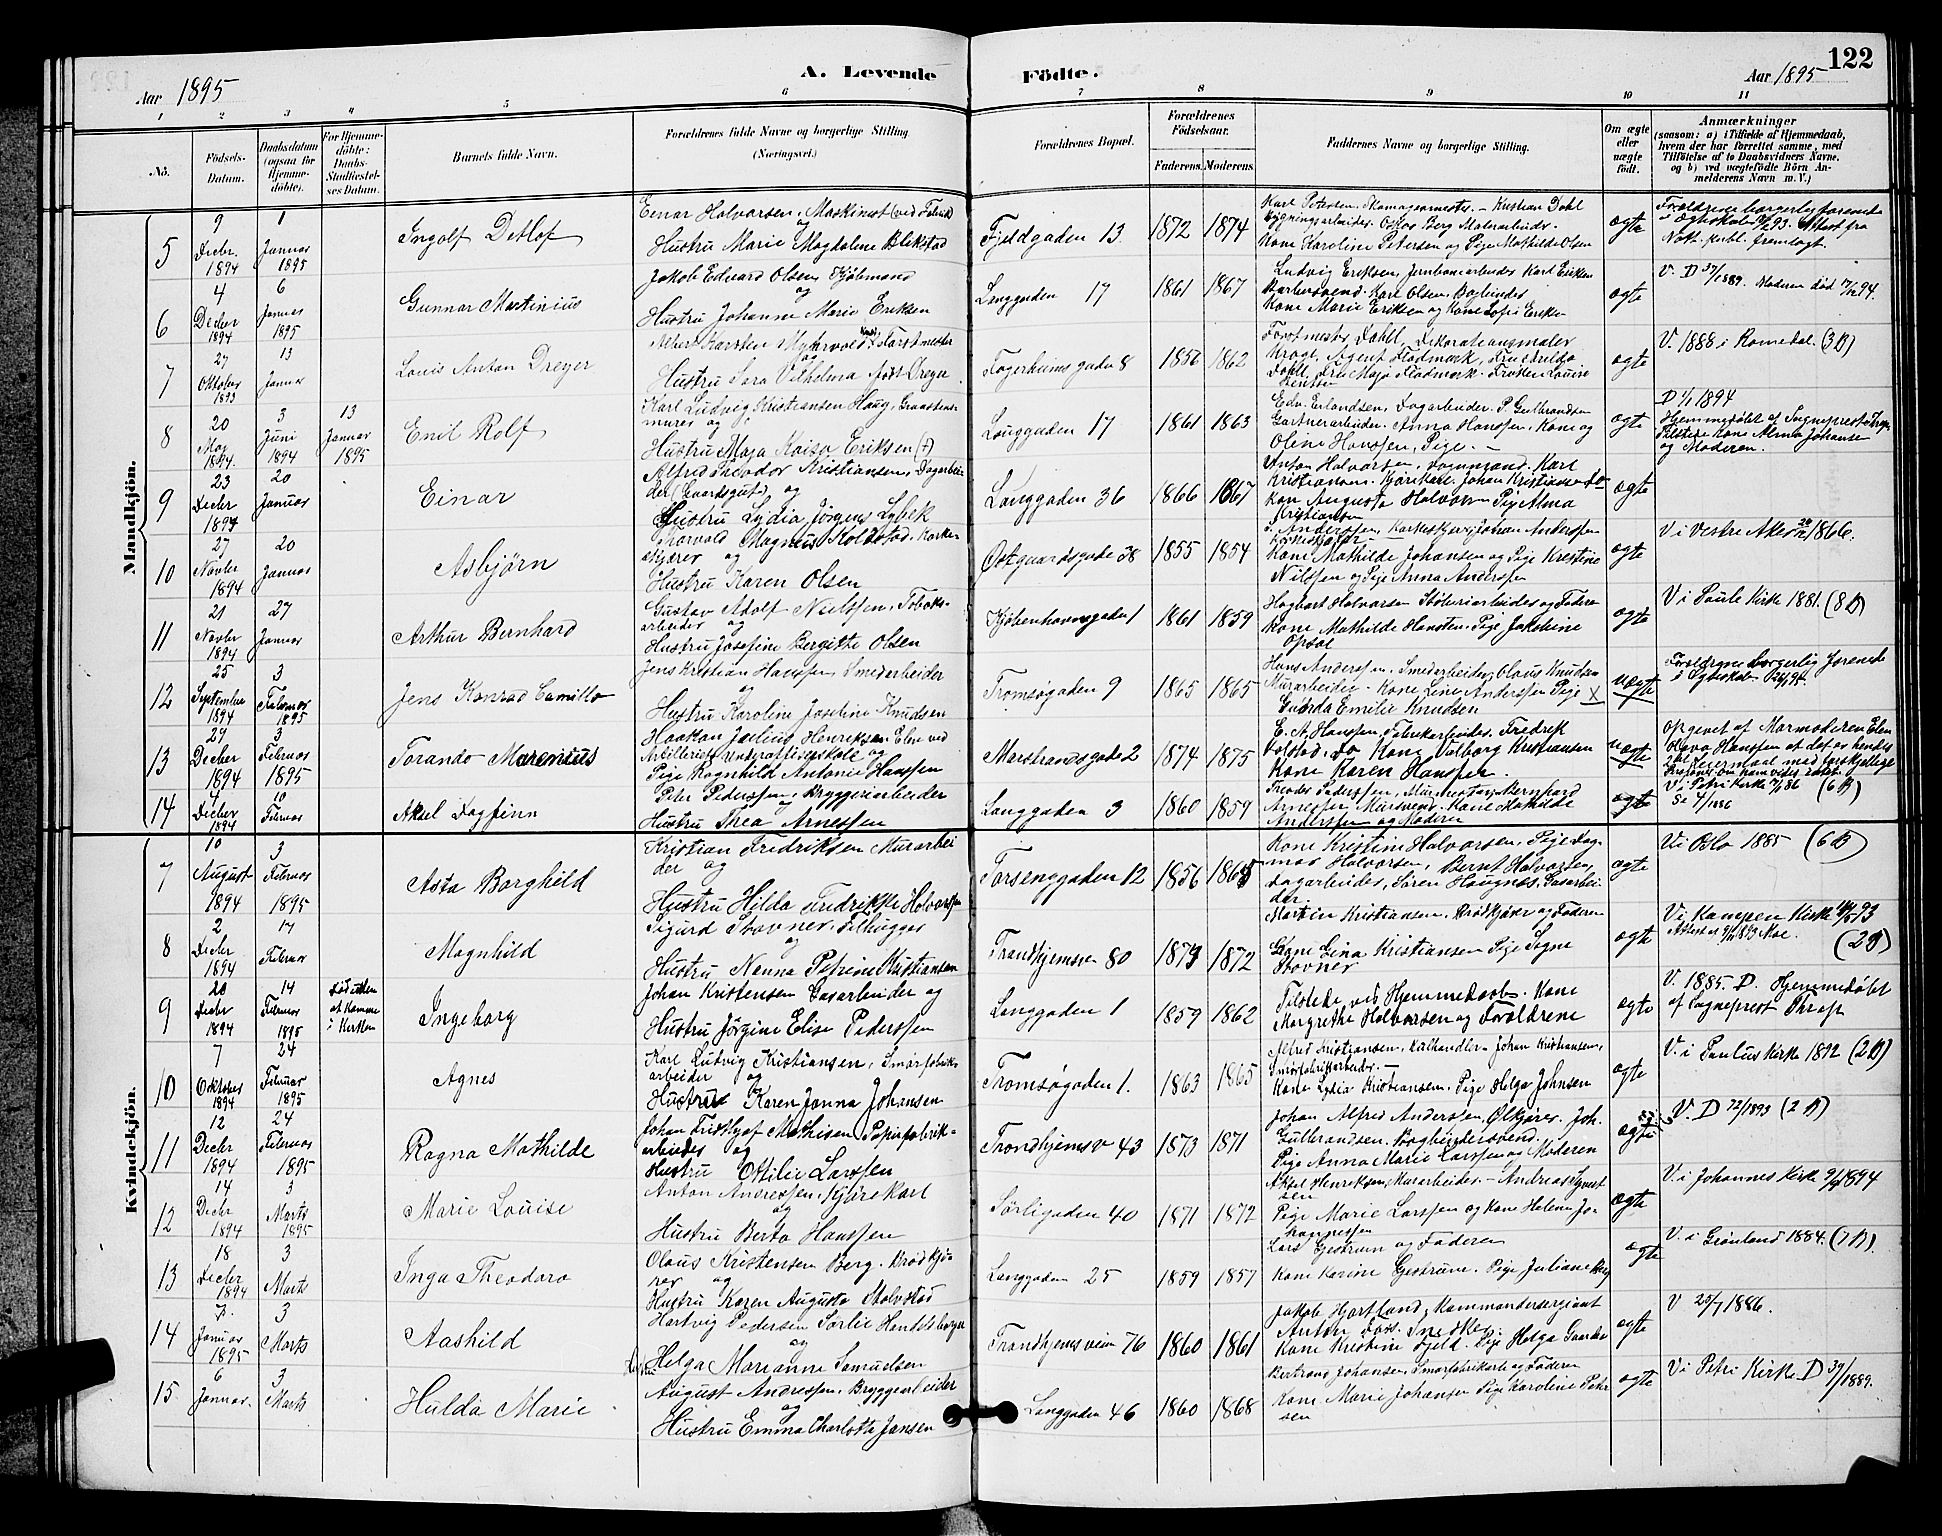 122
Aar 1895
A. Levende Födte.
Aar 1895
1 2 3 4 5 6 7 8 9 10 11
No. Födsels-Datum. Daabsdatum (ogsaa for Hjemmedöbte). For Hjemmedöbte: Daabs-Stadfæstelses Datum. Barnets fulde Navn. Forældrenes fulde Navne og borgerlige Stilling (Næringsvei.) Forældrenes Bopæl. Forældrenes Födselsaar. Faderens. Moderens. Faddernes Navne og borgerlige Stilling. Om ægte eller uægte födt. Anmærkninger (saasom: a) i Tilfælde af Hjemmedaab, hvem der har forrettet samme, med Tilföielse af to Daabsvidners Navne, og b) ved uægtefödte Börn Anmelderens Navn m. V.)
Mandkjön.
5 9 Decbr 1894 1 Januar 1895 Ingolf Detlof Einar Halvorsen, Maskinist (ved Fabrik) Hustru Marie Magdalene Blekstad Fjeldgaden 13 1872 1874 Karl Petersen, Skomagermester - Kristian Dahl Bygningsarbeider, Oskar Berg Malerarbeider. Kone Karoline Petersen og Pige Mathilde Olsen ægte
6 4 Decbr 1894 6 Januar 1895 Gunnar Martinius Jakob Edvard Olsen, Kjöbmand og Hustru Johanne Marie Eriksen Langgaden 17 1861 1867 Ludvig Eriksen, Jernbanearbeider Karl Eriksen Barbersvend. Karl Olsen, Bogbinder Kone Marie Eriksen og Kone Sofie Eriksen ægte V. D 37/1889. Moderen död 17/12 94.
7 27 Oktober 1893 13 Januar Louis Anton Dreyer Albert Karsten Myhrvold, Forstmester og Hustru Sara Vilhelma född Dreyer Fagerheimsgaden 8 1856 1862 Forstmester Dahl, Dekorationsmaler Krogt, Agent Flodmark, Fru Dahl, Fru Maja Flodmark. Fröken Louise ægte V. 1888 i Romedal. (3 B)
8 20 Mai 1894 3 Juni 1894 13 Januar 1895 Emil Rolf Karl Ludvig Kristiansen Haug, Graastensmurer og Hustru Maja Kaisa Eriksen (†) Langgaden 17 1861 1863 Edv. Erlandsen, Dagarbeider. P. Gulbrandsen Gartnerarbeider. Anna Hanssen, Kone og Oline Hanssen, Pige. ægte D 1/1 1894 Hjemmedöbt af Sogneprest Thrap. Tilstede Kone Alma Johanse og Moderen.
9 23 Decbr 1894 20 Januar Einar Alfred Teodor Kristiansen, Dagarbeider (Gaardsgut) og Hustru Lydia Jörgens Lybek Langgaden 36 1866 1867 Anton Halvorsen, Karl Kristiansen. Kjörekarl. Johan Kristiansen Do Kone Augusta Halvorsen Pige Alma Kristiansen ægte
10 27 Novbr 1894 20 Januar Asbjörn Thorvald Magnus Koldstad, Korkeskjærer og Hustru Karen Olsen Östgaardsgade 38 1855 1854 Anderssen Korkeskjærer, Johan Anderssen Korkeskjærer Kone Mathilde Johansen og Pige Kristine Nilssen og Pige Anna Anderssen ægte V i Vestre Aker 1866.
11 21 Novbr 1894 27 Januar Arthur Bernhard Gustav Adolf Nielssen, Tobaksarbeider og Hustru Josefine Bergitte Olsen Kjöbenhavnsgaden 1 1861 1859 Hagbart Halvorsen Stöberiarbeider og Faderen Kone Mathilde Hansten. Pige Jakobine Opsal ægte V i Pauls Kirke 1881. (8 B)
12 25 September 1894 3 Februar 1895 Jens Konrad Camillo Jens Kristian Hanssen Smedarbeider og Hustru Karoline Josefine Knudsen Tromsögaden 9 1865 1865 Hans Anderssen, Smedarbeider, Olaus Knudsen Murarbeider. Kone Line Anderssen Pige Gunda Emilie Knudsen uægte Forældrene borgerlig forenede i Egteskab
13 29 Decbr 1894 3 Februar 1895 Torando Marenius Haakon Julius Henriksen Elev ved Artilleriets underofficersskole og Pige Ragnhild Antonie Hanssen Marstrandsgade 2 1874 1875 E. A. Hanssen, Fabrikarbeider. Fredrik Volstad, Do Kone Valborg Kristiansen Kone Karen Hanssen. uægte Opgivet af Mormoderen Elen Hanssen at det er hendes 2det Leiermaal med forskjellige
14 4 Decbr 1894 10 Februar Aksel Dagfinn Peter Pederssen, Bryggeriarbeider og Hustru Thea Arnessen Langgaden 3 1860 1859 Pederssen, Bernhard Arnessen Mursvend. Kone Mathilde Anderssen og Moderen ægte V i Petri Kirke 7/1 86 (6 B)
Kvindekjön.
7 10 August 1894 3 Februar 1895 Asta Borghild Kristian Fredriksen Murarbeider og Hustru Hilda Fredrikke Halvorssen Torsenggaden 12 1856 1865 Kone Kristine Halvorsen, Pige Dagmar Halvorsen, Bernt Halvorsen, Dagarbeider, Sören Haugnæs, Gasarbeider. ægte V i Oslo 1885 (6 B)
8 2 Decbr 1894 17 Februar Magnhild Sigurd Stovner, Filhugger og Hustru Nanna Petrine Kristiansen Trondhjemsvei 80 1873 1872 Martin Kristiansen, Brödkjörer og Faderen Kone Gina Kristiansen Pige Signe Stovner ægte V i Kampen Kirke 93 (2 B)
9 20 Decbr 1894 14 Februar 1895 Död uden at komme i Kirken Ingeborg Johan Kristensen Gasarbeider og Hustru Jörgine Elise Pederssen Langgaden 1 1859 1862 Tilstede ved Hjemmedaab. Kone Margrethe Halvorsen og Forældrene ægte V. 1885. D. Hjemmedöbt af Sogneprest Thrap
10 7 Oktober 1894 24 Februar 1895 Agnes Karl Ludvig Kristiansen, Smörfabrikarbeider og Hustru Karen Janna Johansen Tromsögaden 1. 1863 1865 Alfred Kristiansen, Kulhandler. Johan Kristiansen, Smörfabrikarbeider. Kone Lydia Kristiansen. Pige Helga Johnsen ægte V. i Paulus Kirke 1892 (2 B)
11 12 Decbr 1894 24 Februar 1895 Ragna Mathilde Johan Fridthjof Mathisen Papirfabrikarbeider og Hustru Ottilie Larssen Trondhjemsv 43 1873 1871 Johan Alfred Anderssen, Ölkjörer. Joh. Gulbrandsen. Bogbindersvend. Pige Anna Marie Larssen og Moderen ægte V. D 72/1893 (2 B)
12 14 Decbr 1894 3 Marts 1895 Marie Louise Anton Andressen, Kjörekarl og Hustru Berta Hanssen Sörligaden 40 1871 1872 Aksel Henriksen, Murarbeider. - Andreas Syvertsen Pige Marie Larssen og Kone Helene Johannessen ægte V. i Johannes Kirke 1894
13 18 Decbr 1894 3 Marts Inga Theodora Olaus Kristensen Berg. Brödkjörer og Hustru Karen Augusta Stalvstad Langgaden 25 1859 1857 Lars Gjestrum og Faderen Kone Karine Gjestrum. Pige Juliane Berg ægte V. i Grönland 1884. (7 B)
14 7. Januar 1895 3 Marts Aashild Hartvig Pedersen Sörlie og Hustru Helga Marianne Samuelsen Trondhjemsveien 76 1860 1861 Jakob Hartland, Kommandersergiant Anton Foss. Snedker. Kone Kristine Fjeld. Pige Helga ægte V 25/7 1886.
15 6 Januar. 3 Marts Hulda Marie August Andressen, Bryggeriarbeider og Hustru Emma Charlotte Jansen Langgaden 46 1860 1868 Bertrand Johansen, Smörfabrikarb. og Faderen Kone Marie Johansen Pige Karoline Petersen ægte V i Petri Kirke D 39/1889.